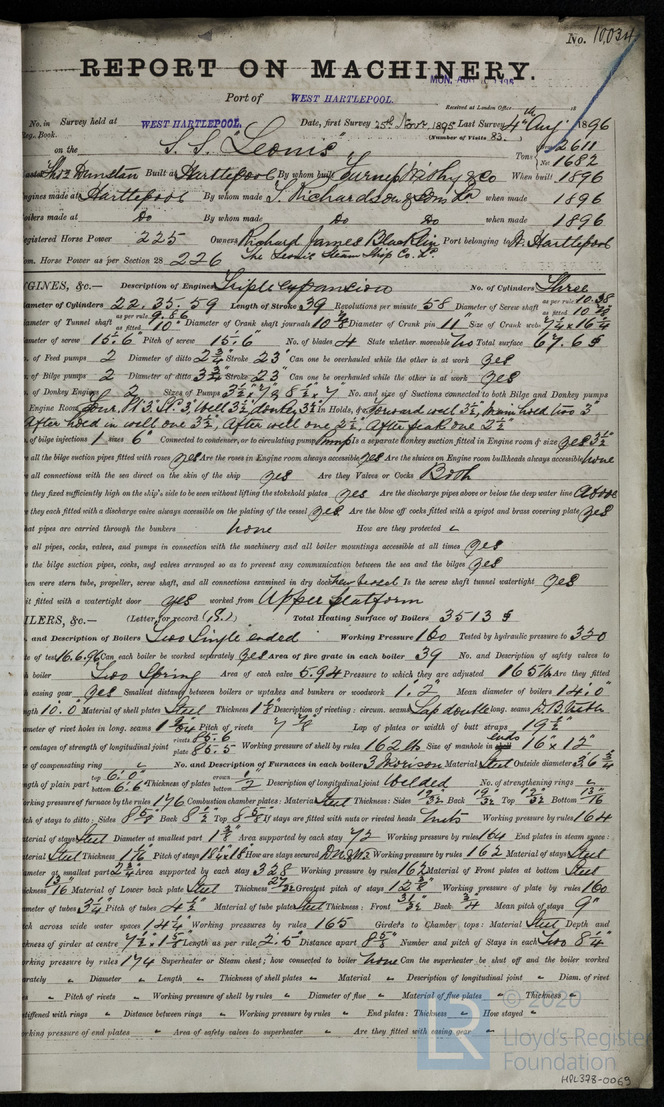 No. 10,034
REPORT ON MACHINERY.
Port of WEST HARTLEPOOL.
Received at London Office 18
No. in Survey held at WEST HARTLEPOOL. Date, first Survey 25th Novr, 1895 Last Survey 4th Aug 1896
Reg. Book. (Number of Visits 83.)
on the S.S. "Leonis" Tons 2611
1682
Thos Dunstan Built at Hartlepool By whom built Furness Withy & Co When built 1896
ngines made at Hartlepool By whom made T. Richardson & Sons Ld when made 1896
oilers made at Do By whom made Do Do when made 1896
egistered Horse Power 225 Owners Richard James Blacklin Port belonging to W. Hartlepool
om. Horse Power as per Section 28 226 The Leonis Steam Ship Co. Ld.
GINES, &c.— Description of Engines Triple expansion No. of Cylinders Three
ameter of Cylinders 22. 35. 59 Length of Stroke 39 Revolutions per minute 58 Diameter of Screw shaft as per rule 10.38 as fitted
ameter of Tunnel shaft as per rule 9.86 as fitted 10" Diameter of Crank shaft journals 10 7/8 Diameter of Crank pin 11" Size of Crank webs 7 1/4 x 16 1/4
ameter of screw 15.6" Pitch of screw 15.6" No. of blades 4 State whether moveable no Total surface 67.6 $
of Feed pumps 2 Diameter of ditto 2 3/4 Stroke 23" Can one be overhauled while the other is at work yes
of Bilge pumps 2 Diameter of ditto 3 3/4 Stroke 23" Can one be overhauled while the other is at work yes
of Donkey Engines 2 Sizes of Pumps 3 1/2 x 7 & 8 1/2 x 7" No. and size of Suctions connected to both Bilge and Donkey pumps
Engine Room Four. Well 3 1/2, donkey 3 1/2 In Holds, &c. Forward well 3 1/2, main hold two 3"
After hold in well one 3 1/2, After well one 2 1/2", After peak one 2 1/2"
of bilge injections 1 sizes 6" Connected to condenser, or to circulating pump Pump Is a separate donkey suction fitted in Engine room & size yes 3 1/2
all the bilge suction pipes fitted with roses yes Are the roses in Engine room always accessible yes Are the sluices on Engine room bulkheads always accessible none
all connections with the sea direct on the skin of the ship yes Are they Valves or Cocks Both
they fixed sufficiently high on the ship's side to be seen without lifting the stokehold plates yes Are the discharge pipes above or below the deep water line Above
they each fitted with a discharge valve always accessible on the plating of the vessel yes Are the blow off cocks fitted with a spigot and brass covering plate yes
hat pipes are carried through the bunkers none How are they protected "
all pipes, cocks, valves, and pumps in connection with the machinery and all boiler mountings accessible at all times yes
the bilge suction pipes, cocks, and valves arranged so as to prevent any communication between the sea and the bilges yes
hen were stern tube, propeller, screw shaft, and all connections examined in dry dock New vessel Is the screw shaft tunnel watertight yes
it fitted with a watertight door yes worked from Upper platform
ILERS, &c.— (Letter for record (S.) Total Heating Surface of Boilers 3513 $
and Description of Boilers Two Single ended Working Pressure 160 Tested by hydraulic pressure to 320
te of test 16.6.96 Can each boiler be worked separately yes Area of fire grate in each boiler 39 No. and Description of safety valves to
h boiler Two Spring Area of each valve 5.94 Pressure to which they are adjusted 165 lb Are they fitted
h easing gear yes Smallest distance between boilers or uptakes and bunkers or woodwork 1.2" Mean diameter of boilers 14.0"
ngth 10.0" Material of shell plates Steel Thickness Description of riveting: circum. seams Lap double long. seams
ameter of rivet holes in long. seams Pitch of rivets 7 7/8 Lap of plates or width of butt straps 19 1/2"
er centages of strength of longitudinal joint rivets 85.6 plate 85.5 Working pressure of shell by rules 162 lb Size of manhole in ends 16 x 12"
e of compensating ring " No. and Description of Furnaces in each boiler 3 Morison Material Steel Outside diameter 3.6 3/4
ngth of plain part top 6.0" bottom 6.6" Thickness of plates crown bottom 1/2" Description of longitudinal joint Welded No. of strengthening rings "
orking pressure of furnace by the rules 176 Combustion chamber plates: Material Steel Thickness: Sides 19/32 Back 19/32 Top 19/32 Bottom 13/16
tch of stays to ditto: Sides 8 5/8 Back 8 1/2 Top 8 5/8 If stays are fitted with nuts or riveted heads nuts Working pressure by rules 164
aterial of stays Steel Diameter at smallest part 1 3/8 Area supported by each stay 72 Working pressure by rules 164 End plates in steam space:
aterial Steel Thickness Pitch of stays How are stays secured Working pressure by rules 162 Material of stays Steel
ameter at smallest part 2 3/4 Area supported by each stay 328 Working pressure by rules 162 Material of Front plates at bottom Steel
ickness 13/16 Material of Lower back plate Steel Thickness Greatest pitch of stays Working pressure of plate by rules 160
ameter of tubes 3 1/4 Pitch of tubes 4 1/2 Material of tube plates Steel Thickness: Front 31/32 Back 3/4 Mean pitch of stays 9"
tch across wide water spaces 14 1/4 Working pressures by rules 165 Girders to Chamber tops: Material Steel Depth and
ickness of girder at centre 7 1/2 x 1 5/8 Length as per rule 2.5" Distance apart 8 5/8 Number and pitch of Stays in each Two 8 1/4
orking pressure by rules 174 Superheater or Steam chest; how connected to boiler none Can the superheater be shut off and the boiler worked
arately " Diameter " Length " Thickness of shell plates " Material " Description of longitudinal joint " Diam. of rivet
es " Pitch of rivets " Working pressure of shell by rules " Diameter of flue " Material of flue plates " Thickness "
stiffened with rings " Distance between rings " Working pressure by rules " End plates: Thickness " How stayed "
orking pressure of end plates " Area of safety valves to superheater " Are they fitted with easing gear "
© 2020
LR
Lloyd's Register
Foundation
HPL378-0069